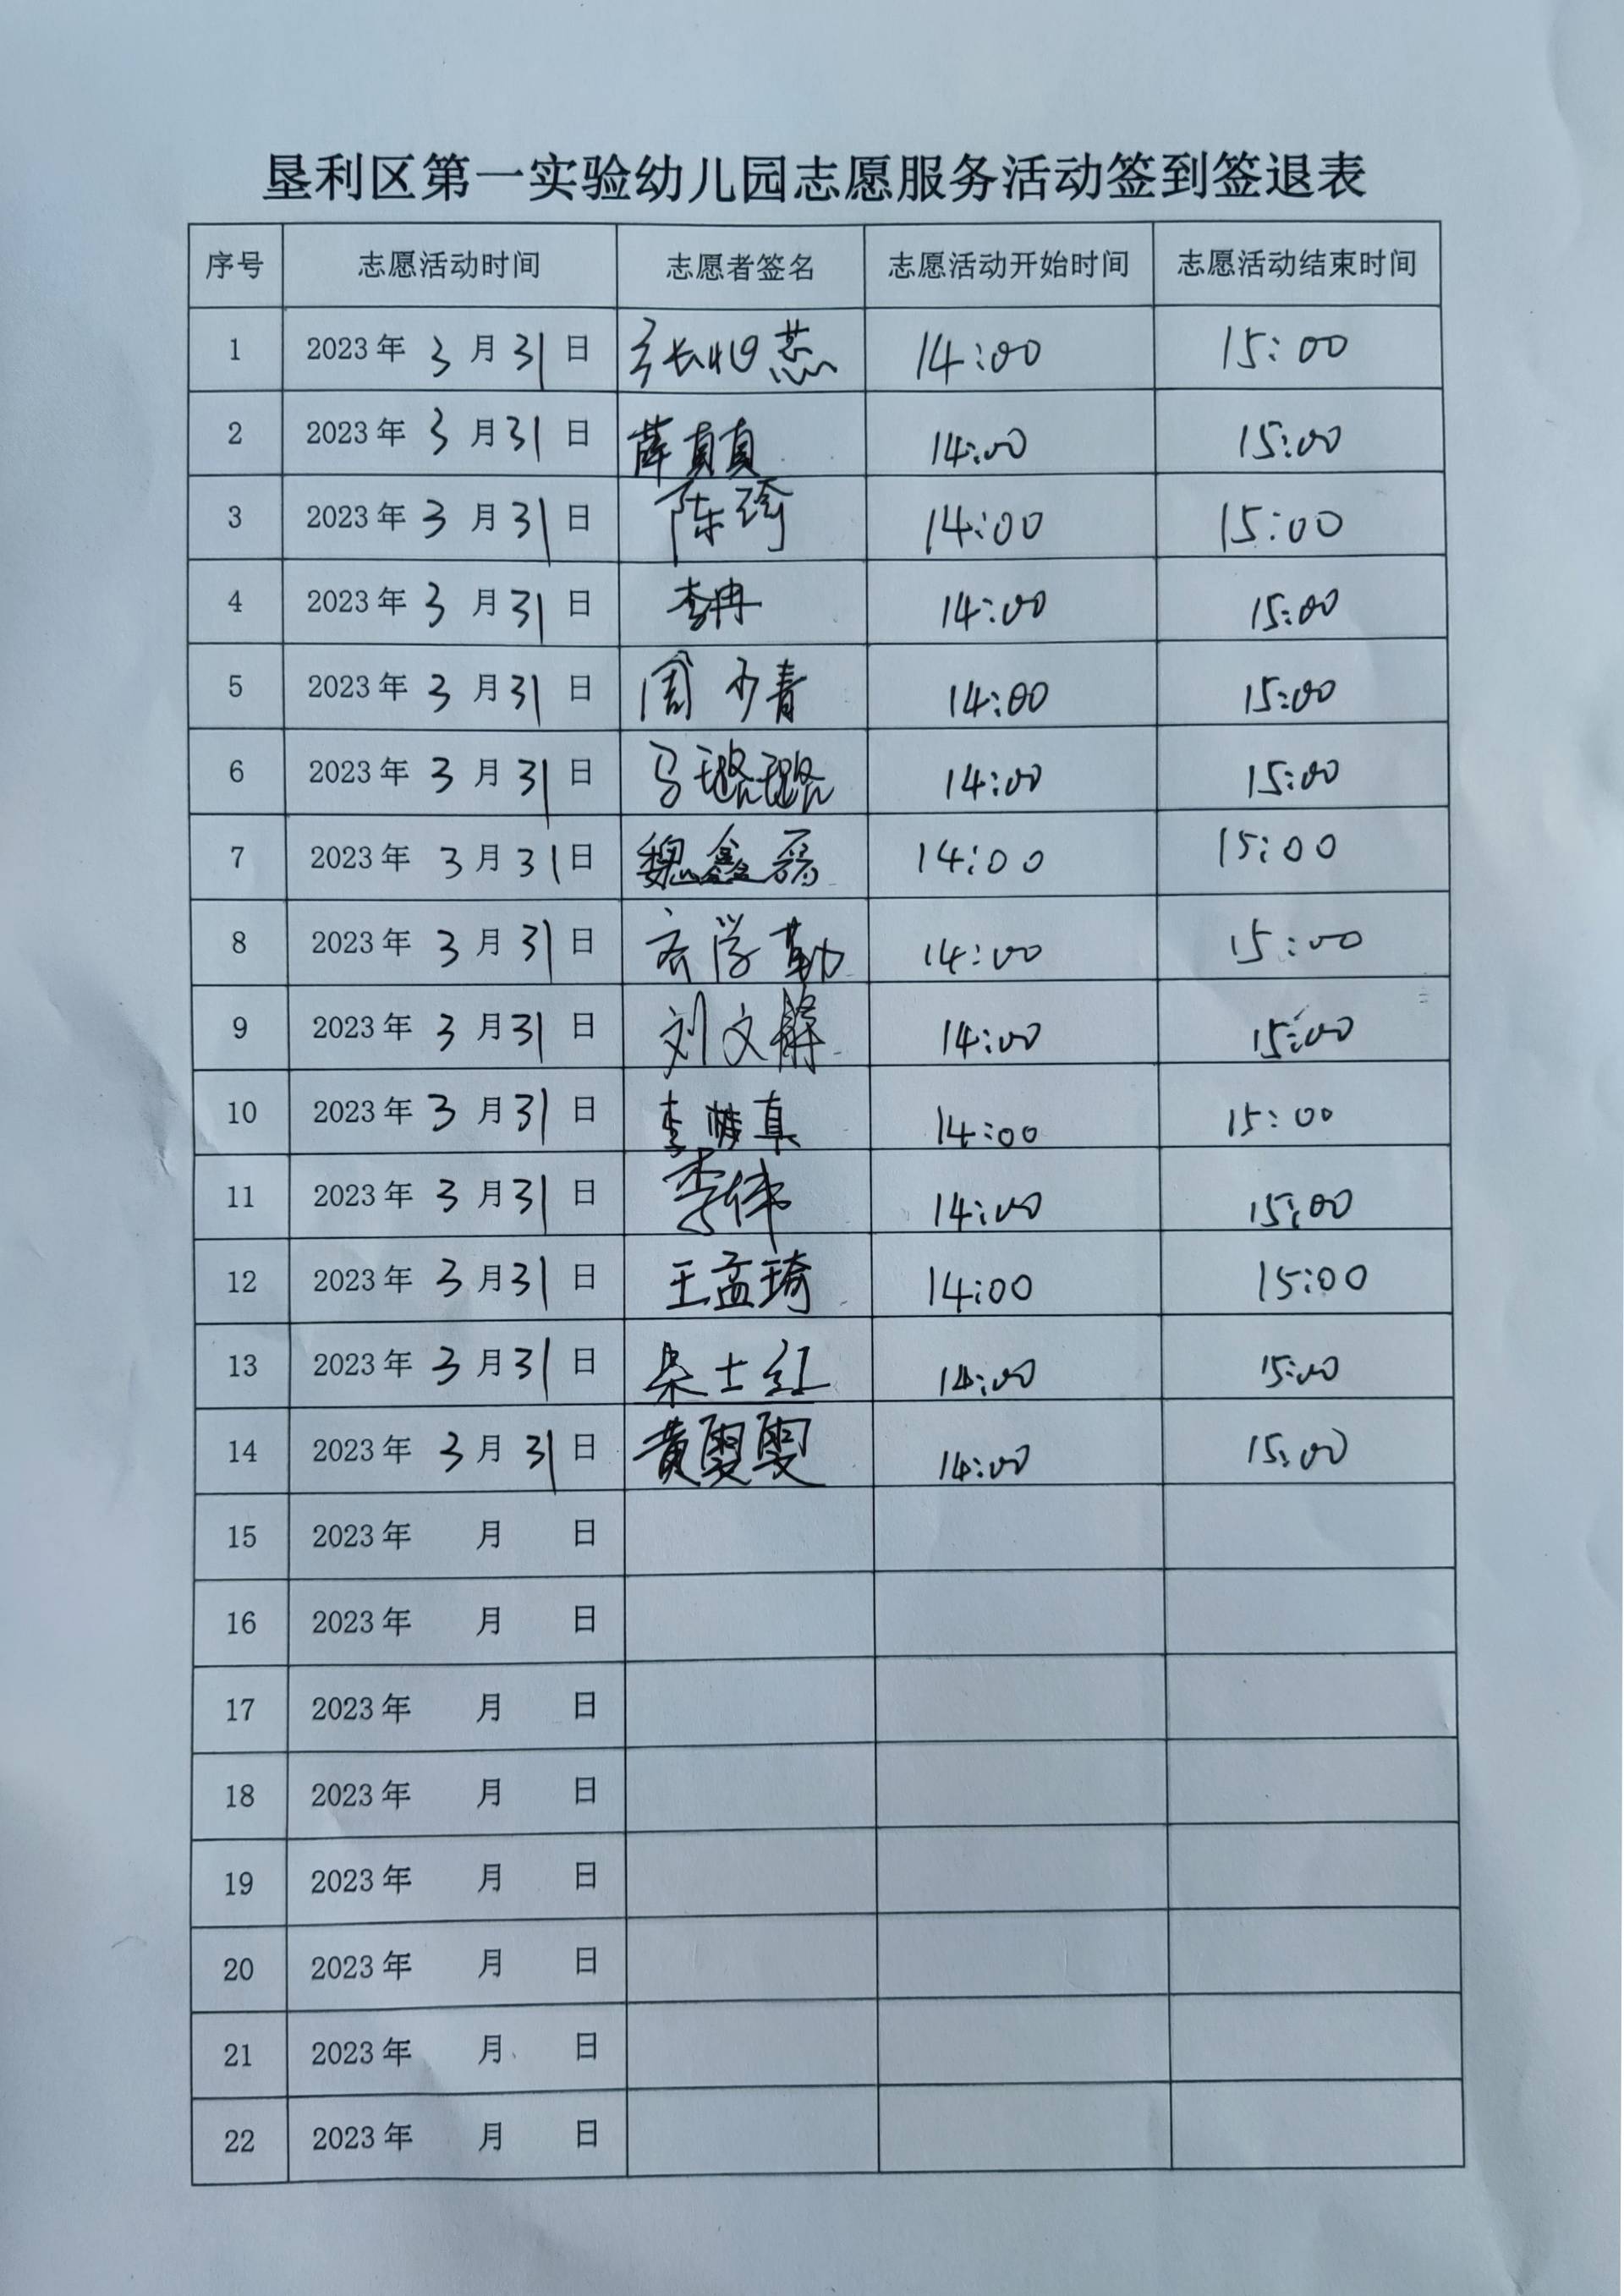 垦利区第一实验幼儿园志愿服务活动签到签退表
序号 志愿活动时间 志愿者签名 志愿活动开始时间 志愿活动结束时间
1 2023年 3 月 31 日 张旭蕊 14:00 15:00
2 2023年 3 月 31 日 薛真真 14:00 15:00
3 2023年 3 月 31 日 陈琦 14:00 15:00
4 2023年 3 月 31 日 李冉 14:00 15:00
5 2023年 3 月 31 日 周少青 14:00 15:00
6 2023年 3 月 31 日 马璐璐 14:00 15:00
7 2023年 3 月 31 日 魏鑫磊 14:00 15:00
8 2023年 3 月 31 日 齐学勤 14:00 15:00
9 2023年 3 月 31 日 刘文静 14:00 15:00
10 2023年 3 月 31 日 李 真 14:00 15:00
11 2023年 3 月 31 日 李伟 14:00 15:00
12 2023年 3 月 31 日 王孟琦 14:00 15:00
13 2023年 3 月 31 日 士红 14:00 15:00
14 2023年 3 月 31 日 黄雯雯 14:00 15:00
15 2023年 月 日
16 2023年 月 日
17 2023年 月 日
18 2023年 月 日
19 2023年 月 日
20 2023年 月 日
21 2023年 月 日
22 2023年 月 日